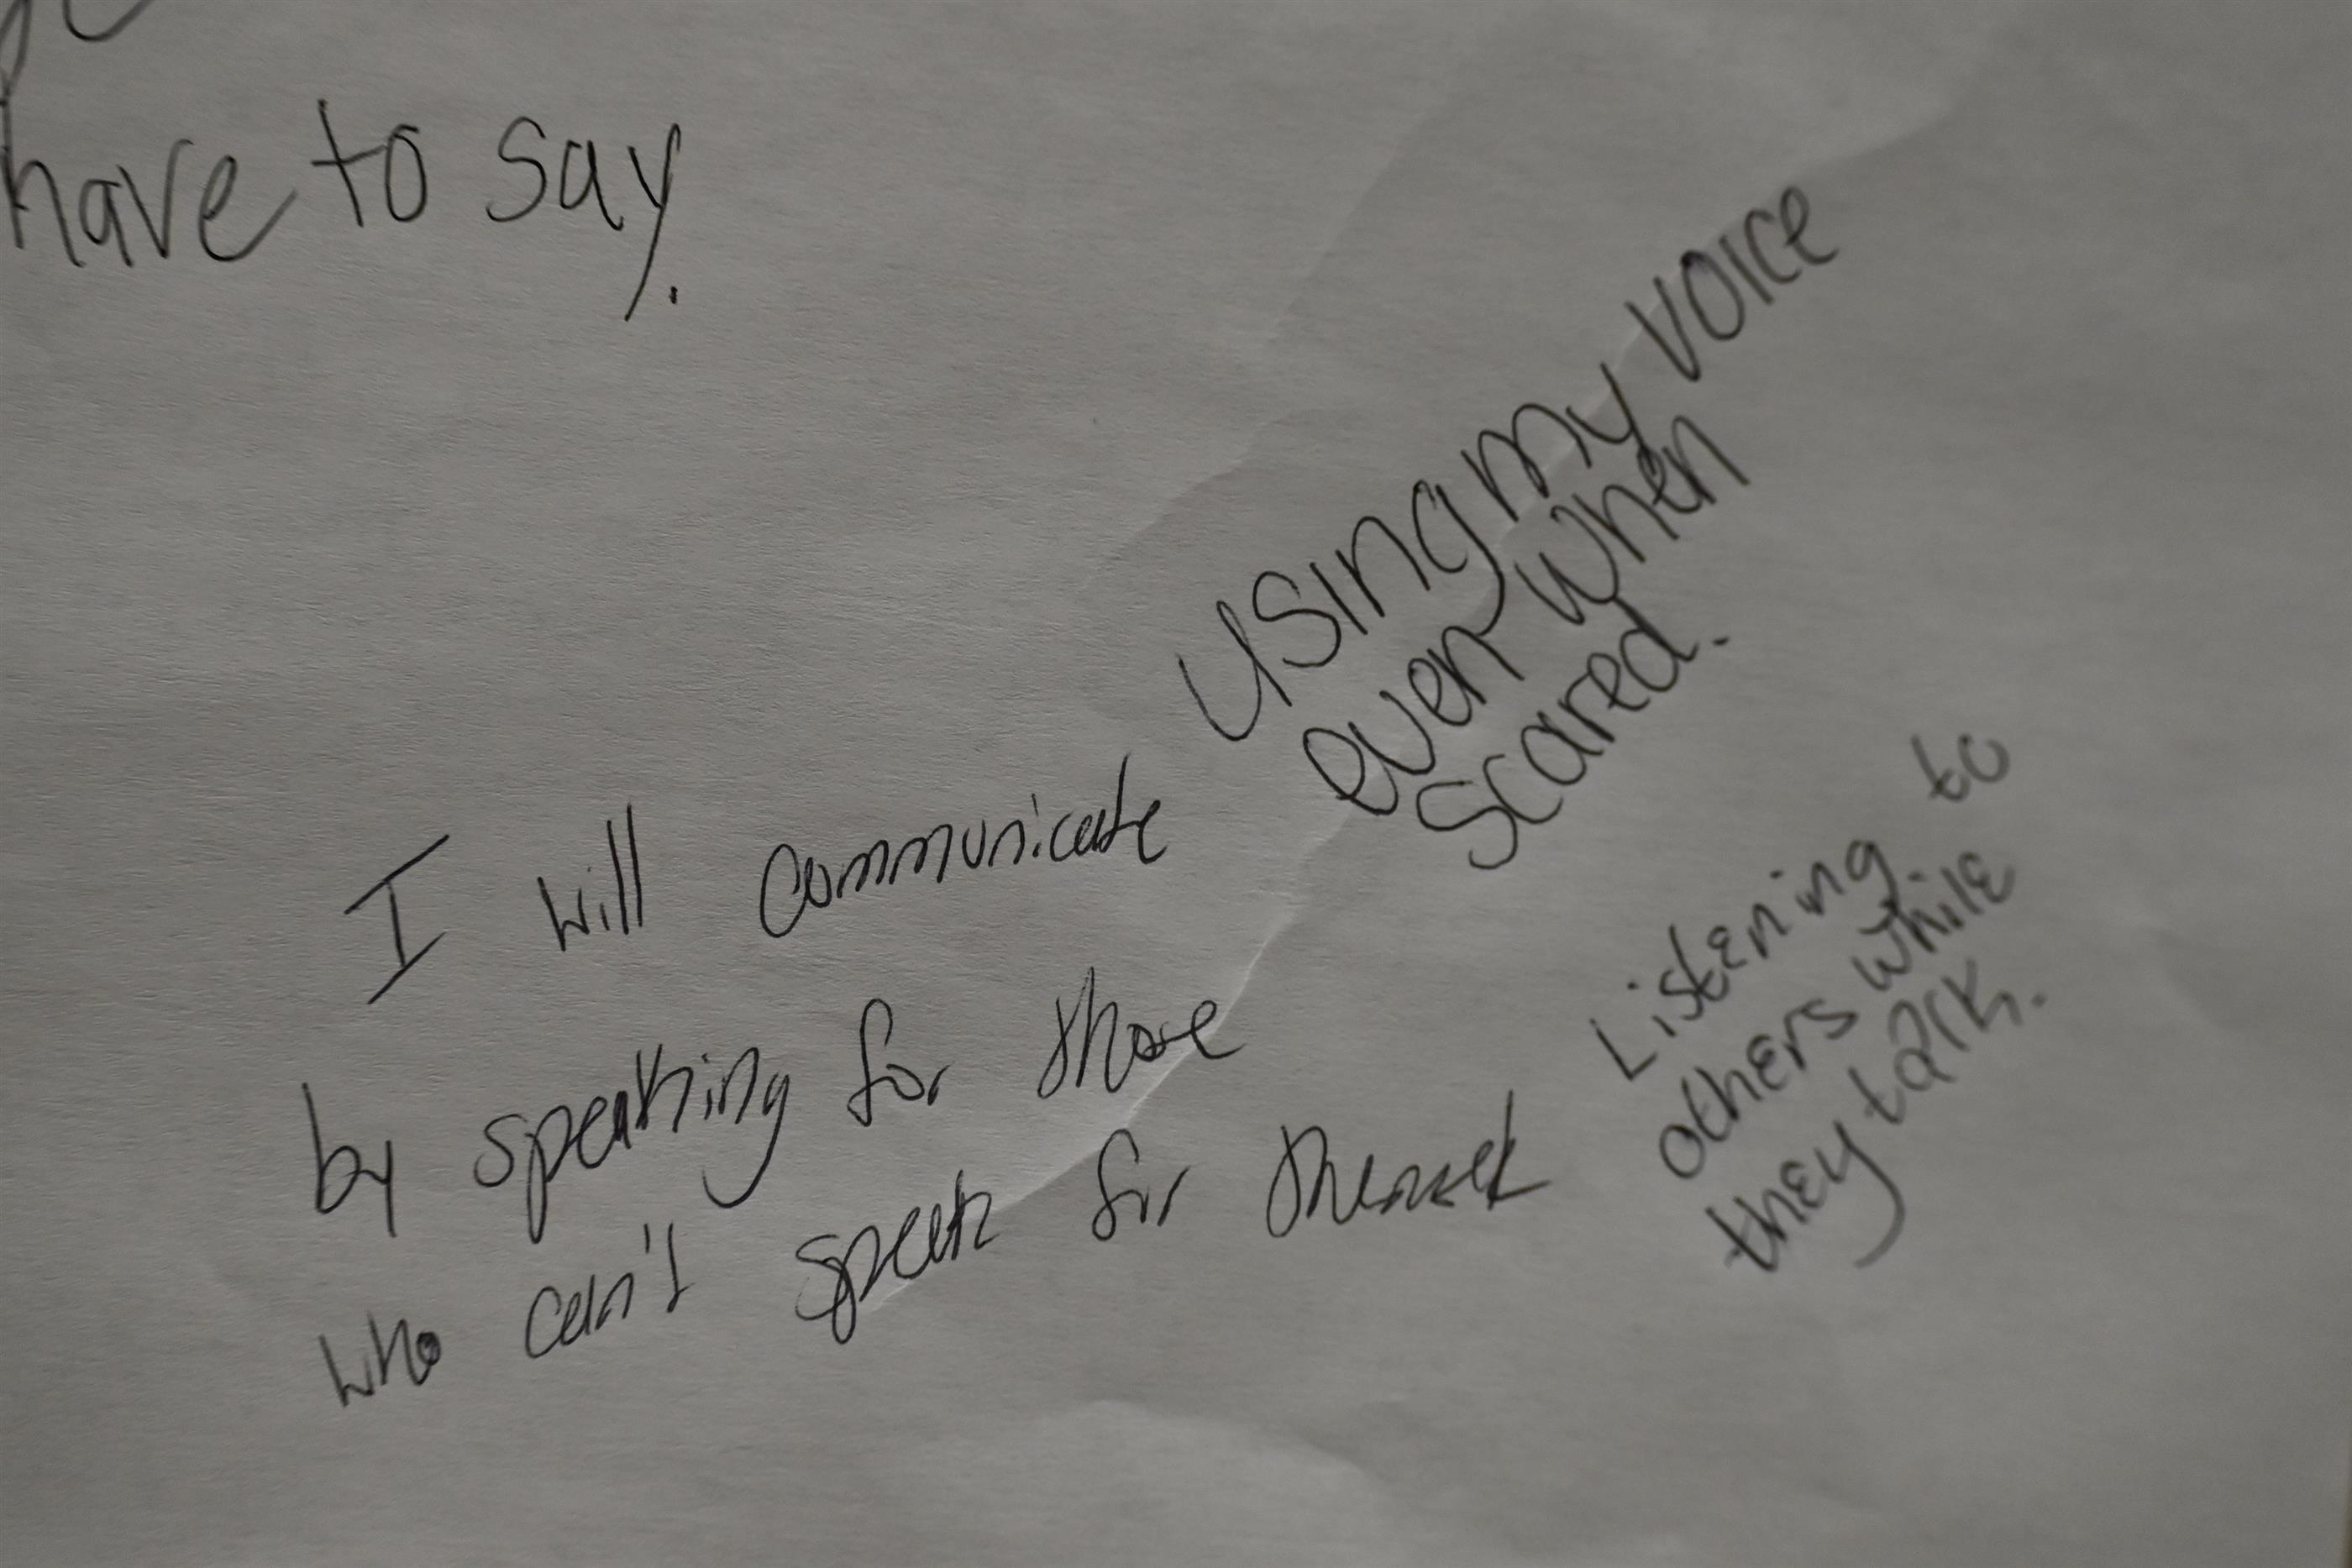 have to say.
using my voice
even when
scared.
I will communicate
by speaking for those
who can't speak for
Listening to
others while
they talk.